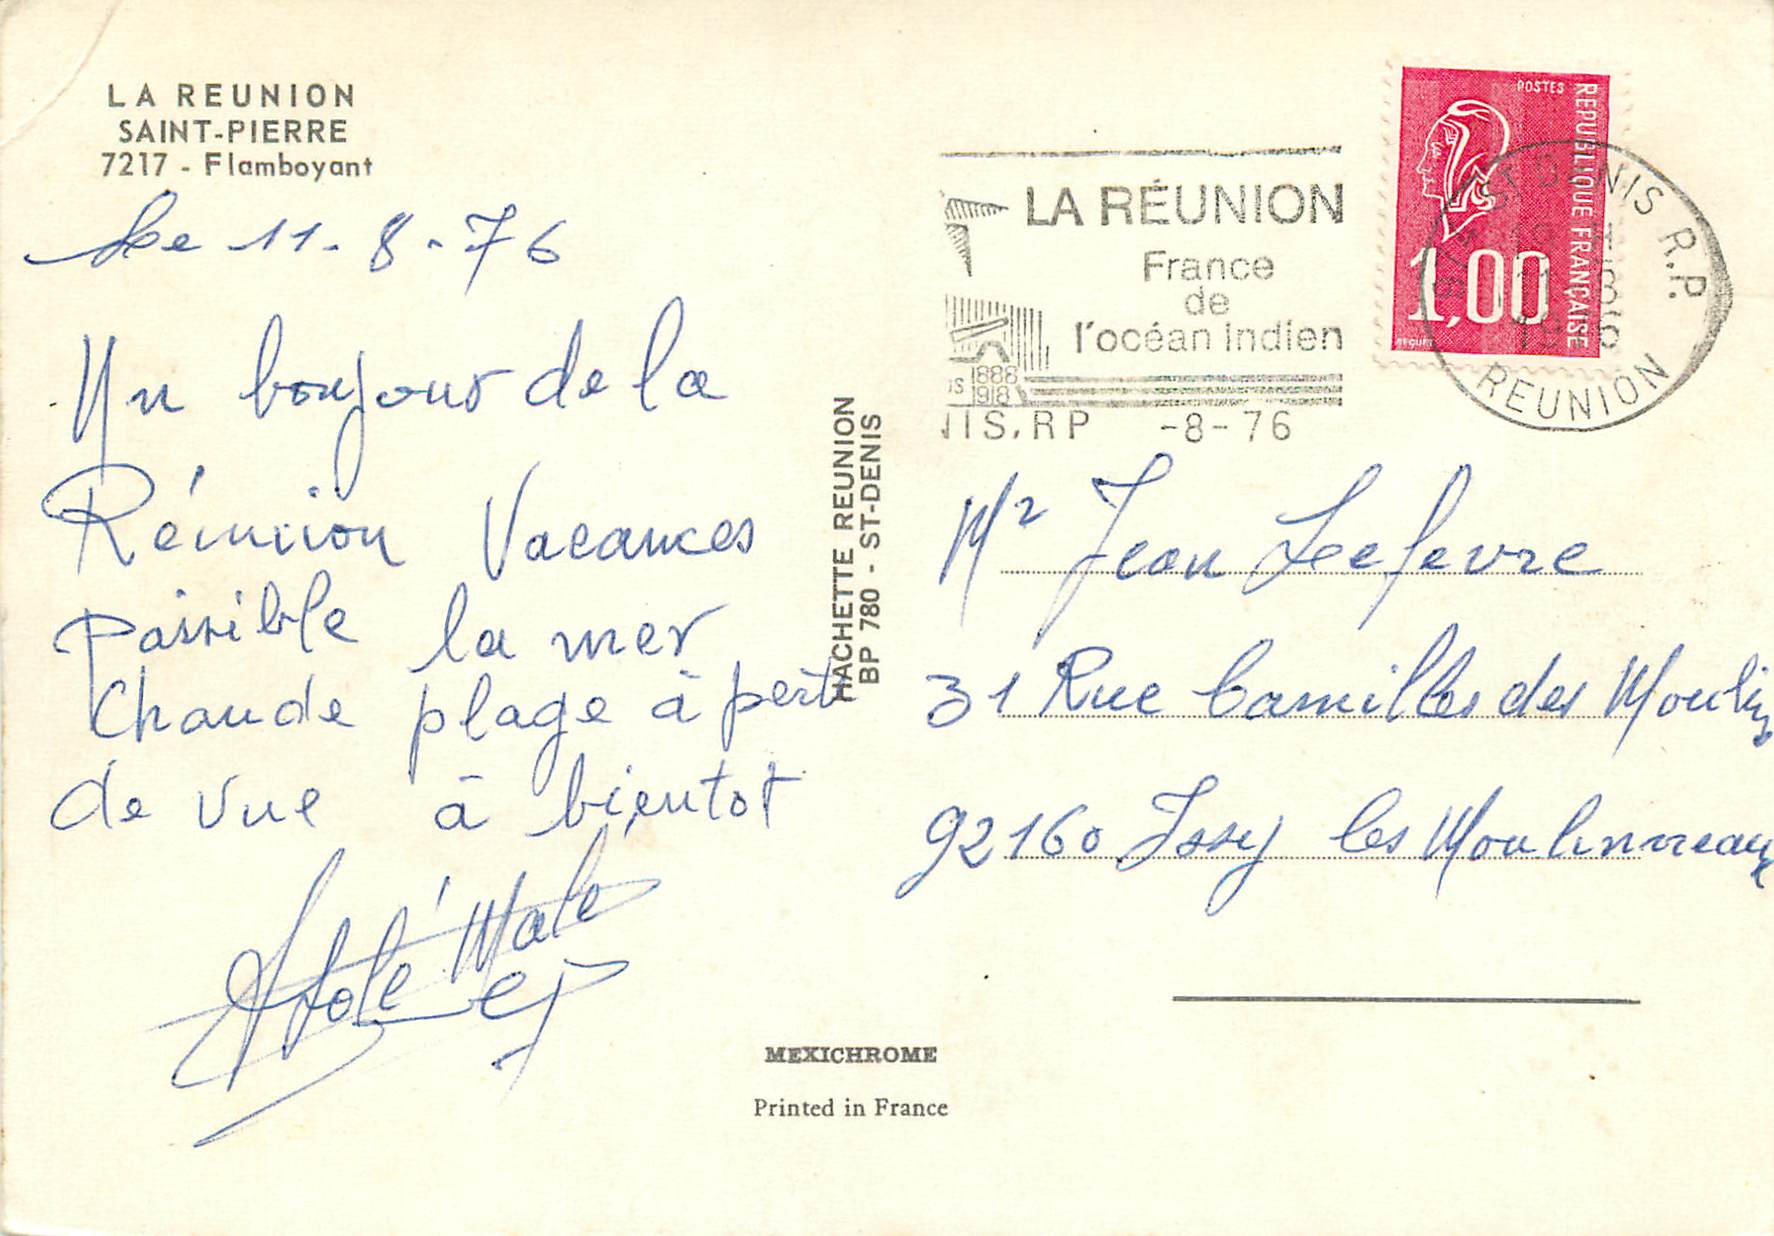 LA REUNION
SAINT-PIERRE
7217 - Flamboyant
Le 11-8-76
Un bonjour de la
Réunion Vacances
paisible la mer
Chaude plage à perte
de vue à bientot
HACHETTE REUNION
BP 780 - ST-DENIS
MEXICHROME
Printed in France
LA RÉUNION
France
de
l'océan indien
1888
1918
NIS.RP -8-76
POSTES
REPUBLIQUE FRANÇAISE
1,00
ST DENIS R.P.
REUNION
Mr Jean Lefevre
31 Rue Camilles des Moulins
92160 Issy les Moulinneaux